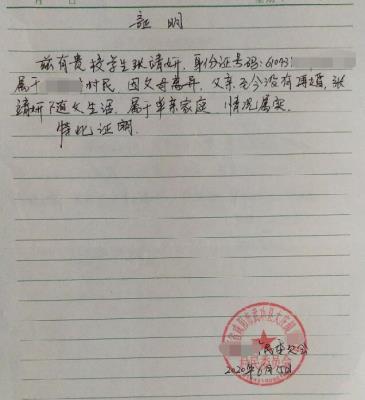 证明
兹有贵校学生张靖妍,身份证号码:61093
属于 村民,因父母离异,父亲至今没有再婚,张
靖妍随父生活,属于单亲家庭,情况属实。
特此证明。
村民委员会
2020年6月15日